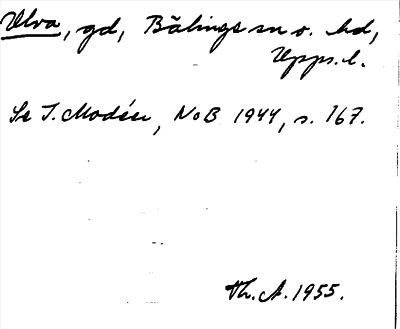 Ulva, gd, Bälinge sn o. hd,
Upps. l.
Se I. Modéer, NoB 1944, s. 167.
Th. A. 1955.